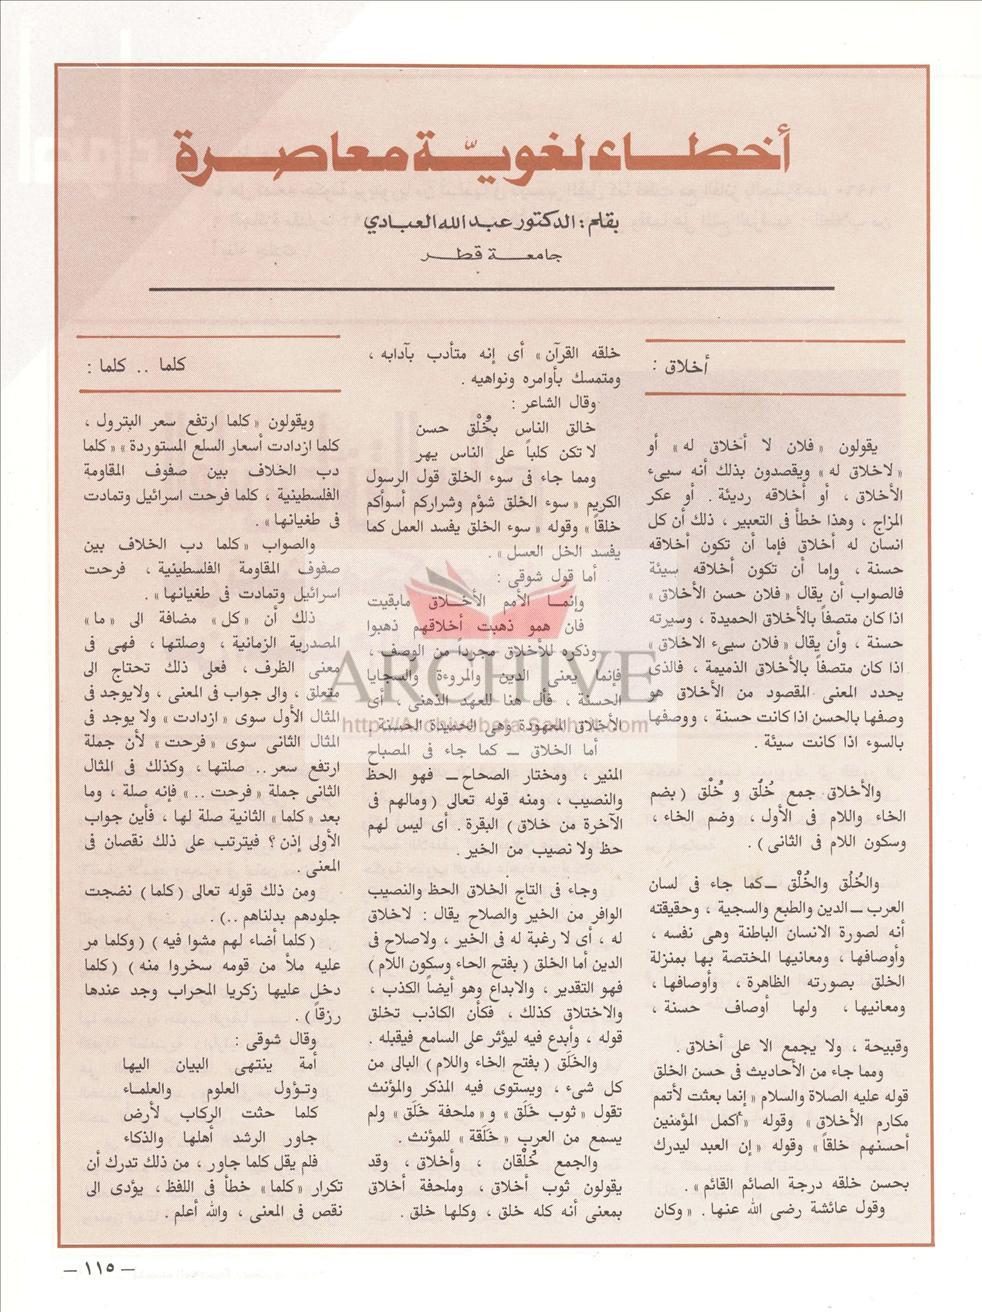 أخطاء لغويّة معاصِرة
بقلم : الدكتور عبد الله العبادي
جامعة قطر
أخلاق :
يقولون « فلان لا أخلاق له » أو
« لاخلاق له » ويقصدون بذلك أنه سيىء
الأخلاق ، أو أخلاقه رديئة . أو عكر
المزاج ، وهذا خطأ فى التعبير ، ذلك أن كل
انسان له أخلاق فإما أن تكون أخلاقه
حسنة ، وإما أن تكون أخلاقه سيئة
فالصواب أن يقال « فلان حسن الأخلاق »
اذا كان متصفاً بالأخلاق الحميدة ، وسيرته
حسنة ، وأن يقال « فلان سيىء الاخلاق »
اذا كان متصفاً بالأخلاق الذميمة ، فالذى
يحدد المعنى المقصود من الأخلاق هو
وصفها بالحسن اذا كانت حسنة ، ووصفها
بالسوء اذا كانت سيئة .
والأخلاق جمع خُلُق و خُلق ( بضم
الخاء واللام فى الأول ، وضم الخاء ،
وسكون اللام فى الثانى ) .
والخُلُق والخُلْق ــ كما جاء فى لسان
العرب ــ الدين والطبع والسجية ، وحقيقته
أنه لصورة الانسان الباطنة وهى نفسه ،
وأوصافها ، ومعانيها المختصة بها بمنزلة
الخلق بصورته الظاهرة ، وأوصافها ،
ومعانيها ، ولها أوصاف حسنة ،
وقبيحة ، ولا يجمع الا على أخلاق .
ومما جاء من الأحاديث فى حسن الخلق
قوله عليه الصلاة والسلام « إنما بعثت لأتمم
مكارم الأخلاق » وقوله « أكمل المؤمنين
أحسنهم خلقاً » وقوله « إن العبد ليدرك
بحسن خلقه درجة الصائم القائم » .
وقول عائشة رضى الله عنها . « وكان
خلقه القرآن » أى إنه متأدب بآدابه ،
ومتمسك بأوامره ونواهيه .
وقال الشاعر :
خالق الناس بخُلْق حسن
لا تكن كلباً على الناس يهر
ومما جاء فى سوء الخلق قول الرسول
الكريم « سوء الخلق شؤم وشراركم أسوأكم
خلقاً » وقوله « سوء الخلق يفسد العمل كما
يفسد الخل العسل » .
أما قول شوقى :
وإنما الأمم الأخلاق مابقيت
فان همو ذهبت أخلاقهم ذهبوا
وذكره للأخلاق مجرداً من الوصف ،
فإنما يعنى الدين والمروءة والسجايا
الحسنة ، فأل هنا للعهد الذهنى ، أى
الأخلاق المعهودة وهى الحميدة الحسنة .
أما الخلاق ــ كما جاء فى المصباح
المنير ، ومختار الصحاح ــ فهو الحظ
والنصيب ، ومنه قوله تعالى ( ومالهم فى
الآخرة من خلاق ) البقرة . أى ليس لهم
حظ ولا نصيب من الخير .
وجاء فى التاج الخلاق الحظ والنصيب
الوافر من الخير والصلاح يقال : لاخلاق
له ، أى لا رغبة له فى الخير ، ولاصلاح فى
الدين أما الخلق ( بفتح الحاء وسكون اللام )
فهو التقدير ، والابداع وهو أيضاً الكذب ،
والاختلاق كذلك ، فكأن الكاذب تخلق
قوله ، وأبدع فيه ليؤثر على السامع فيقبله .
والخَلَق ( بفتح الخاء واللام ) البالى من
كل شىء ، ويستوى فيه المذكر والمؤنث
تقول « ثوب خَلَق » و « ملحفة خَلَق » ولم
يسمع من العرب « خَلَقة » للمؤنث .
والجمع خُلْقان ، وأخلاق ، وقد
يقولون ثوب أخلاق ، وملحفة أخلاق
بمعنى أنه كله خلق ، وكلها خلق .
كلما .. كلما :
ويقولون « كلما ارتفع سعر البترول ،
كلما ازدادت أسعار السلع المستوردة » « كلما
دب الخلاف بين صفوف المقاومة
الفلسطينية ، كلما فرحت اسرائيل وتمادت
فى طغيانها » .
والصواب « كلما دب الخلاف بين
صفوف المقاومة الفلسطينية ، فرحت
اسرائيل وتمادت فى طغيانها » .
ذلك أن « كل » مضافة الى « ما »
المصدرية الزمانية ، وصلتها ، فهى فى
معنى الظرف ، فعلى ذلك تحتاج الى
متعلق ، والى جواب فى المعنى ، ولايوجد فى
المثال الأول سوى « ازدادت » ولا يوجد فى
المثال الثانى سوى « فرحت » لأن جملة
ارتفع سعر .. صلتها ، وكذلك فى المثال
الثانى جملة « فرحت .. » فإنه صلة ، وما
بعد « كلما » الثانية صلة لها ، فأين جواب
الأولى إذن ؟ فيترتب على ذلك نقصان فى
المعنى .
ومن ذلك قوله تعالى ( كلما ) نضجت
جلودهم بدلناهم .. ) .
( كلما أضاء لهم مشوا فيه ) ( وكلما مر
عليه ملأ من قومه سخروا منه ) ( كلما
دخل عليها زكريا المحراب وجد عندها
رزقاً ) .
وقال شوقى :
أمة ينتهى البيان اليها
وتـؤول العلوم والعلمـاء
كلما حثت الركاب لأرض
جاور الرشد أهلها والذكاء
فلم يقل كلما جاور ، من ذلك تدرك أن
تكرار « كلما » خطأ فى اللفظ ، يؤدى الى
نقص فى المعنى ، والله أعلم .
ARCHIVE
http://Archivebeta.Sakhrit.com
ــ ١١٥ ــ